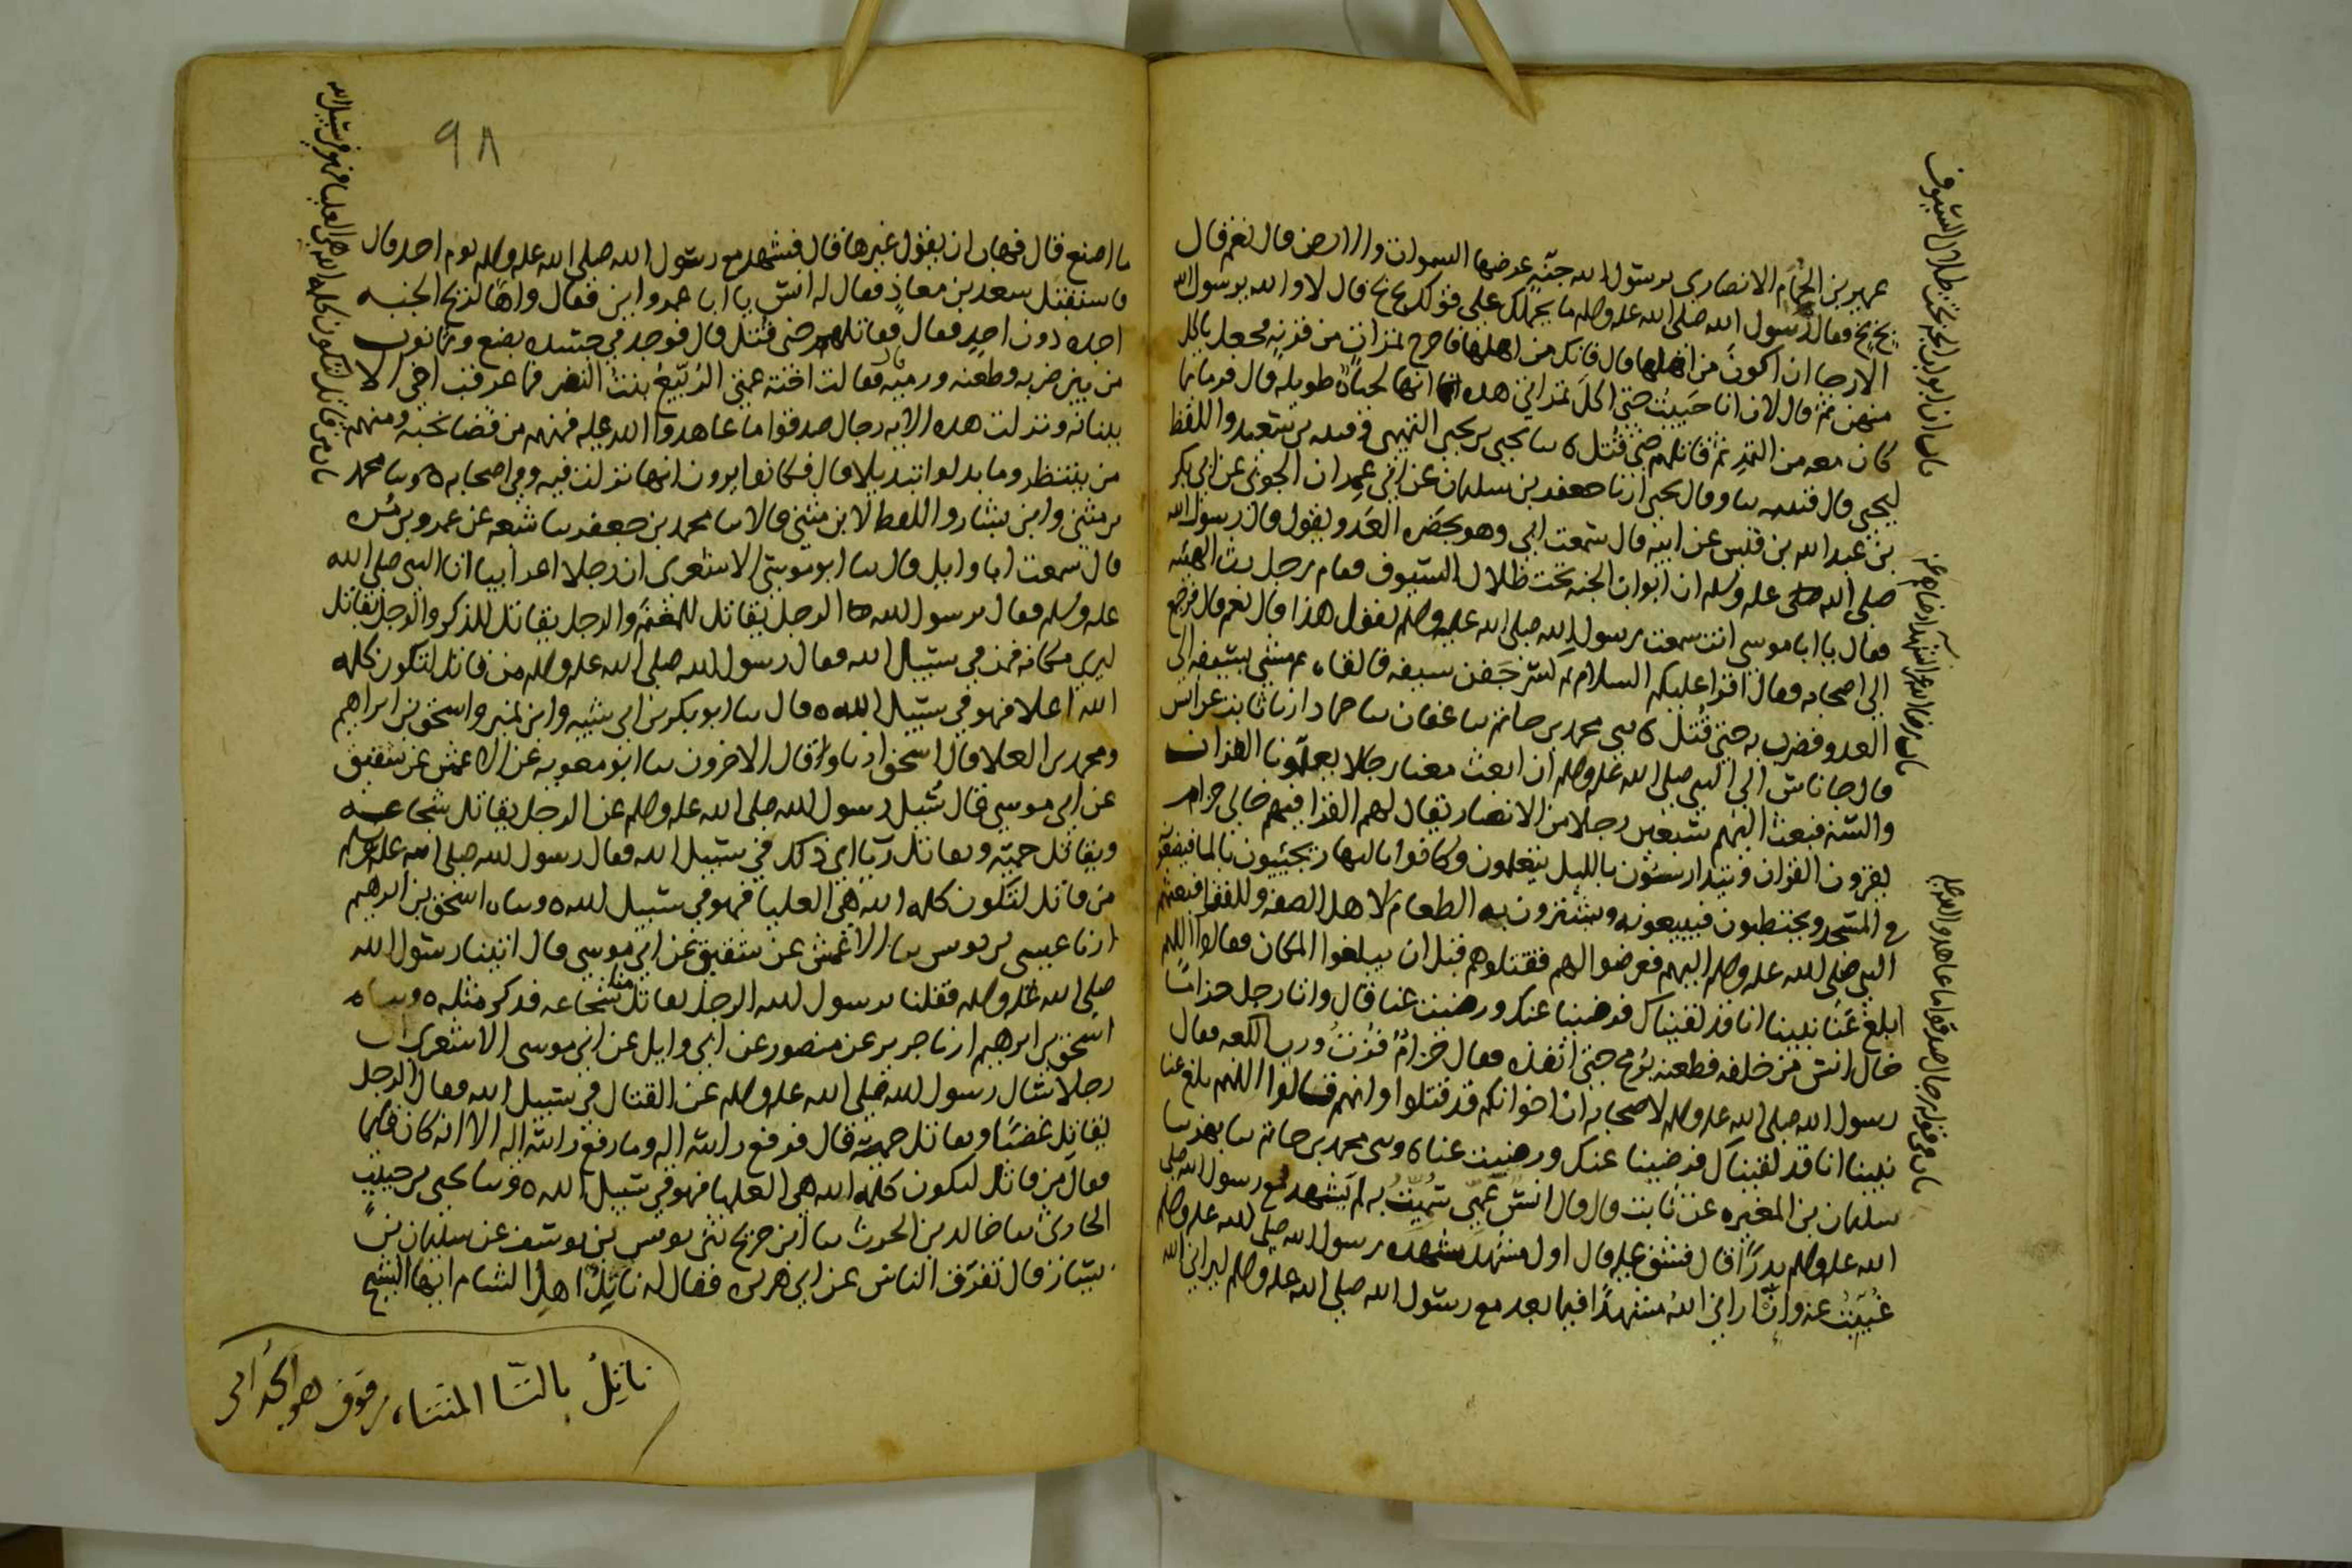 عمير بن الحمام الانصارى يرسول الله جنه عرضها السموات والارض قال نعم قال
بخ بخ فقال رسول الله صلى الله عليه وسلم ما يحملك على قولك بخ بخ قال لا والله يرسول الله
الا رجا ان اكون من اهلها قال فانك من اهلها فاخرج تمرات من قرنه فجعل ياكل
منهن ثم قال لان انا حييت حتى اكل تمراتى هذه انها لحياة طويله قال فرما بما
كان معه من التمر ثم قاتلهم حتى قتل ٥ سا يحيى بن يحيى التميمى وقتيبه بن سعيد واللفظ
ليحيى قال قتيبه سا وقال يحيى ارنا جعفر بن سليمان عن ابى عمران الجونى عن ابى بكر
بن عبد الله بن قيس عن ابيه قال سمعت ابى وهو بحضره العدو يقول قال رسول الله
صلى الله عليه وسلم ان ابواب الجنه تحت ظلال السيوف فقام رجل رث الهيئه
فقال يا ابا موسى انت سمعت رسول الله صلى الله عليه وسلم يقول هذا قال نعم قال فرجع
الى اصحابه فقال اقرا عليكم السلام ثم كسر جفن سيفه فالقاه ثم مشى بسيفه الى
العدو فضرب به حتى قتل ٥ سى محمد بن حاتم سا عفان سا حماد ارنا ثابت عن انس
قال جا ناس الى النبى صلى الله عليه وسلم ان ابعث معنا رجالا يعلمونا القران
والسنه فبعث اليهم سبعين رجلا من الانصار يقال لهم القرا فيهم خالى حرام
يقرون القران ويتدارسون بالليل يتعلمون وكانوا بالنهار يجيبون بالما فيضعونه
فى المسجد ويحتطبون فيبيعونه ويشترون به الطعام لاهل الصفه وللفقرا فبعثهم
النبى صلى الله عليه وسلم اليهم فعرضوا لهم فقتلوهم قبل ان يبلغوا المكان فقالوا اللهم
ابلغ عنا نبينا انا قد لقيناك فرضينا عنك ورضيت عنا قال واتا رجل حراما
خال انس من خلفه فطعنه برمح حتى انفذه فقال حرام فزت ورب الكعبه فقال
رسول الله صلى الله عليه وسلم لاصحابه ان اخوانكم قد قتلوا وانهم قالوا اللهم بلغ عنا
نبينا انا قد لقيناك فرضينا عنك ورضيت عنا ٥ وسى محمد بن حاتم سا بهز سا
سليمان بن المغيره عن ثابت قال قال انس عمى سميت به لم يشهد مع رسول الله صلى
الله عليه وسلم بدرا قال فشق عليه قال اول مشهد شهده رسول الله صلى الله عليه وسلم
غيبت عنه وان ارانى الله مشهدا فيما بعد مع رسول الله صلى الله عليه وسلم ليرانى الله
باب ان ابواب الجنه تحت ظلال السيوف
باب رضا الله عن الشهدا ورضاهم عنه
باب فى قوله رجال صدقوا ما عاهدوا الله عليه
٩٨
ما اصنع قال فهاب ان يقول غيرها قال فشهد مع رسول الله صلى الله عليه وسلم يوم احد قال
فاستقبل سعد بن معاذ فقال له انس يا ابا عمرو اين فقال واها لريح الجنه
اجده دون احد فقال فقاتلهم حتى قتل قال فوجد فى جسده بضع وثمانون
من بين ضربه وطعنه ورميه قال فقالت اخته عمتى الربيع بنت النضر فما عرفت اخى الا
ببنانه ونزلت هذه الايه رجال صدقوا ما عاهدوا الله عليه فمنهم من قضا نحبه ومنهم
من ينتظر وما بدلوا تبديلا قال فكانوا يرون انها نزلت فيه وفى اصحابه ٥ وسا محمد
بن مثنى وابن بشار واللفظ لابن مثنى قالا سا محمد بن جعفر سا شعبه عن عمرو بن مره
قال سمعت ابا وايل قال سا ابو موسى الاشعرى ان رجلا اعرابيا اتا النبى صلى الله
عليه وسلم فقال يرسول الله الرجل يقاتل للمغنم والرجل يقاتل للذكر والرجل يقاتل
ليرى مكانه فمن فى سبيل الله فقال رسول الله صلى الله عليه وسلم من قاتل لتكون كلمه
الله اعلا فهو فى سبيل الله ٥ قال سا ابو بكر بن ابى شيبه وابن نمير واسحق بن ابراهيم
ومحمد بن العلا قال اسحق ارنا وقال الاخرون سا ابو معويه عن الاعمش عن شقيق
عن ابى موسى قال سيل رسول الله صلى الله عليه وسلم عن الرجل يقاتل شجاعه
ويقاتل حميه ويقاتل ريا اى ذلك فى سبيل الله فقال رسول الله صلى الله عليه وسلم
من قاتل لتكون كلمه الله هى العليا فهو فى سبيل الله ٥ وساه اسحق بن ابرهيم
ارنا عيسى بن يونس سا الاعمش عن شقيق عن ابى موسى قال اتينا رسول الله
صلى الله عليه وسلم فقلنا يرسول الله الرجل يقاتل منا شجاعه فذكر مثله ٥ وساه
اسحق بن ابرهيم ارنا جرير عن منصور عن ابى وايل عن ابى موسى الاشعرى ان
رجلا سال رسول الله صلى الله عليه وسلم عن القتال فى سبيل الله فقال الرجل
يقاتل غضبا ويقاتل حميه قال فرفع راسه اليه وما رفع راسه اليه الا انه كان قايما
فقال من قاتل لتكون كلمه الله هى العليا فهو فى سبيل الله ٥ وسا يحيى بن حبيب
الحارثى سا خالد بن الحرث سا ابن جريج سى يونس بن يوسف عن سليمان بن
يسار قال تفرق الناس عن ابى هريره فقال له ناتل اهل الشام ايها الشيخ
باب من قاتل لتكون كلمه الله هى العليا فهو فى سبيل الله
ناتل بالتا المثناه من فوق هو الجذامى